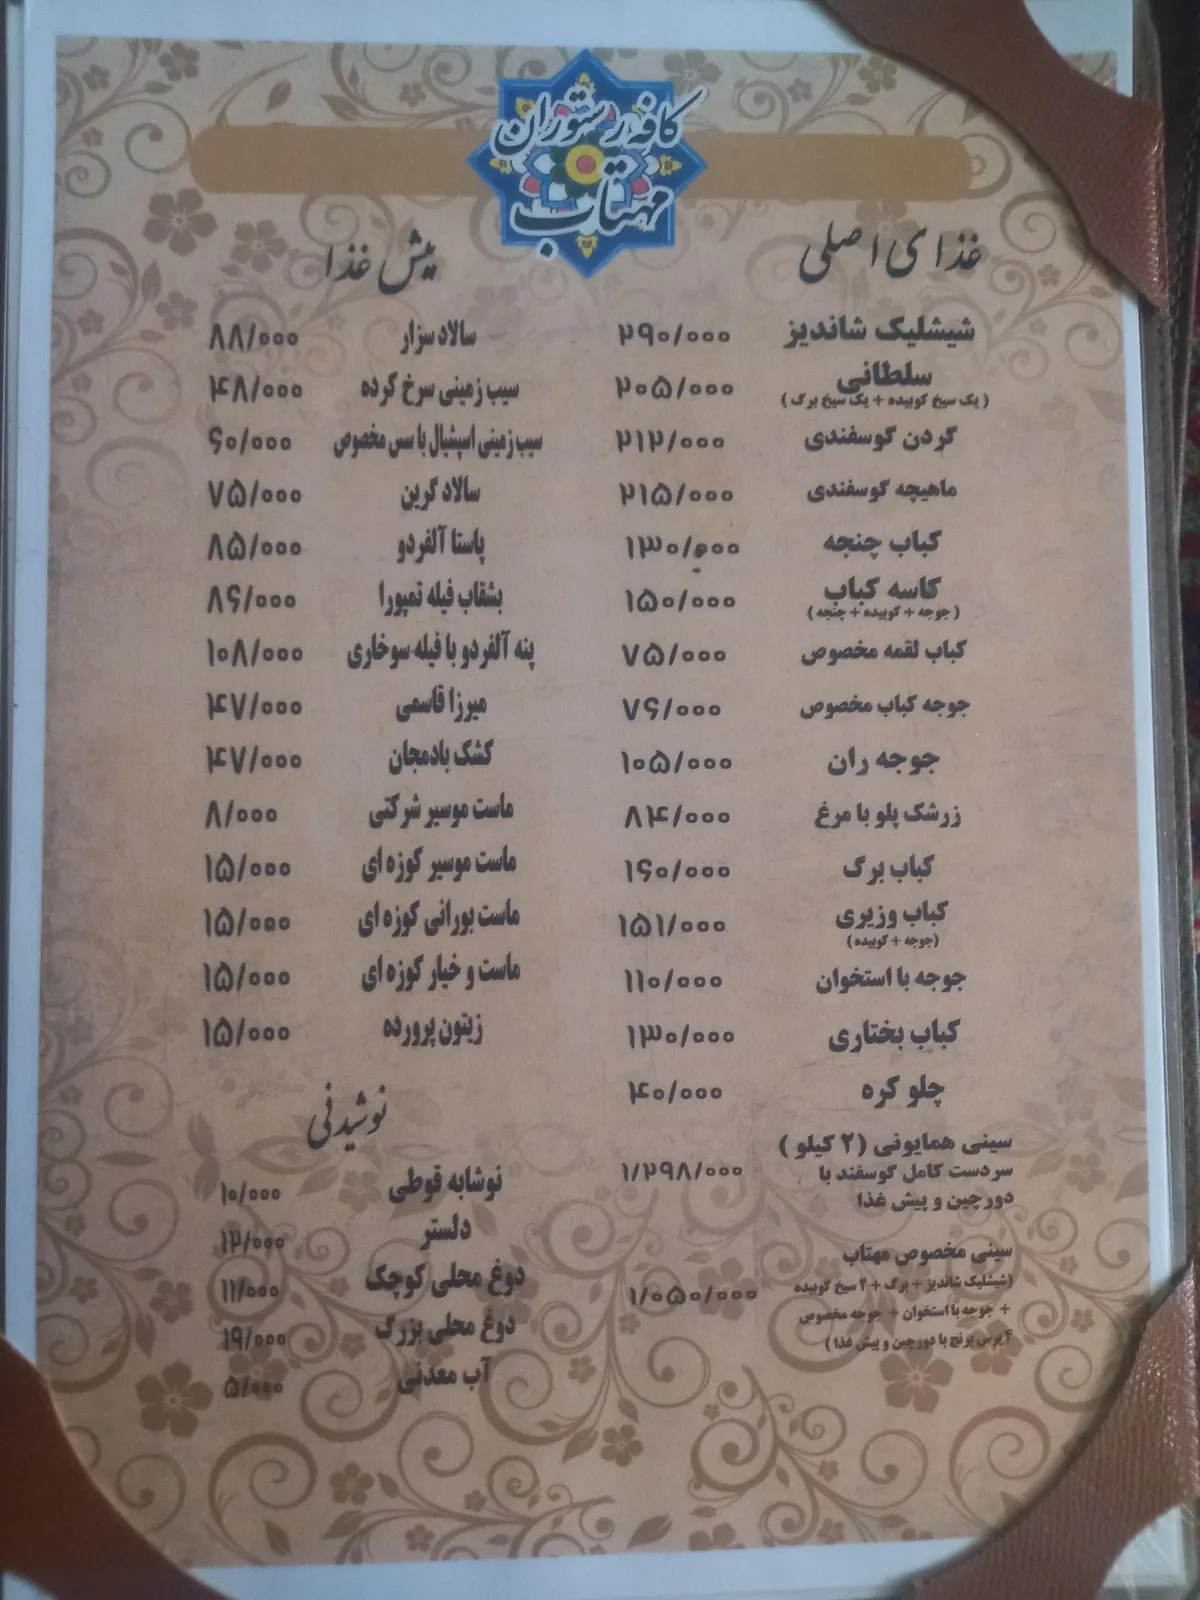 کافه رستوران
مهتاب
غذای اصلی
شیشلیک شاندیز ۲۹۰/۰۰۰
سلطانی ۲۰۵/۰۰۰
( یک سیخ کوبیده + یک سیخ برگ )
گردن گوسفندی ۲۱۲/۰۰۰
ماهیچه گوسفندی ۲۱۵/۰۰۰
کباب چنجه ۱۳۰/۰۰۰
کاسه کباب ۱۵۰/۰۰۰
( جوجه + کوبیده + چنجه )
کباب لقمه مخصوص ۷۵/۰۰۰
جوجه کباب مخصوص ۷۶/۰۰۰
جوجه ران ۱۰۵/۰۰۰
زرشک پلو با مرغ ۸۴/۰۰۰
کباب برگ ۱۶۰/۰۰۰
کباب وزیری ۱۵۱/۰۰۰
(جوجه + کوبیده)
جوجه با استخوان ۱۱۰/۰۰۰
کباب بختاری ۱۳۰/۰۰۰
چلو کره ۴۰/۰۰۰
سینی همایونی (۲ کیلو )
سردست کامل گوسفند با ۱/۲۹۸/۰۰۰
دورچین و پیش غذا
سینی مخصوص مهتاب
(شیشلیک شاندیز + برگ + ۲ سیخ کوبیده ۱/۰۵۰/۰۰۰
+ جوجه با استخوان + جوجه مخصوص
۴پرس برنج با دورچین و پیش غذا )
پیش غذا
سالاد سزار ۸۸/۰۰۰
سیب زمینی سرخ کرده ۴۸/۰۰۰
سیب زمینی اسپشیال با سس مخصوص ۶۰/۰۰۰
سالاد گرین ۷۵/۰۰۰
پاستا آلفردو ۸۵/۰۰۰
بشقاب فیله تمپورا ۸۶/۰۰۰
پنه آلفردو با فیله سوخاری ۱۰۸/۰۰۰
میرزا قاسمی ۴۷/۰۰۰
کشک بادمجان ۴۷/۰۰۰
ماست موسیر شرکتی ۸/۰۰۰
ماست موسیر کوزه ای ۱۵/۰۰۰
ماست بورانی کوزه ای ۱۵/۰۰۰
ماست و خیار کوزه ای ۱۵/۰۰۰
زیتون پرورده ۱۵/۰۰۰
نوشیدنی
نوشابه قوطی ۱۰/۰۰۰
دلستر ۱۲/۰۰۰
دوغ محلی کوچک ۱۱/۰۰۰
دوغ محلی بزرگ ۱۹/۰۰۰
آب معدنی ۵/۰۰۰